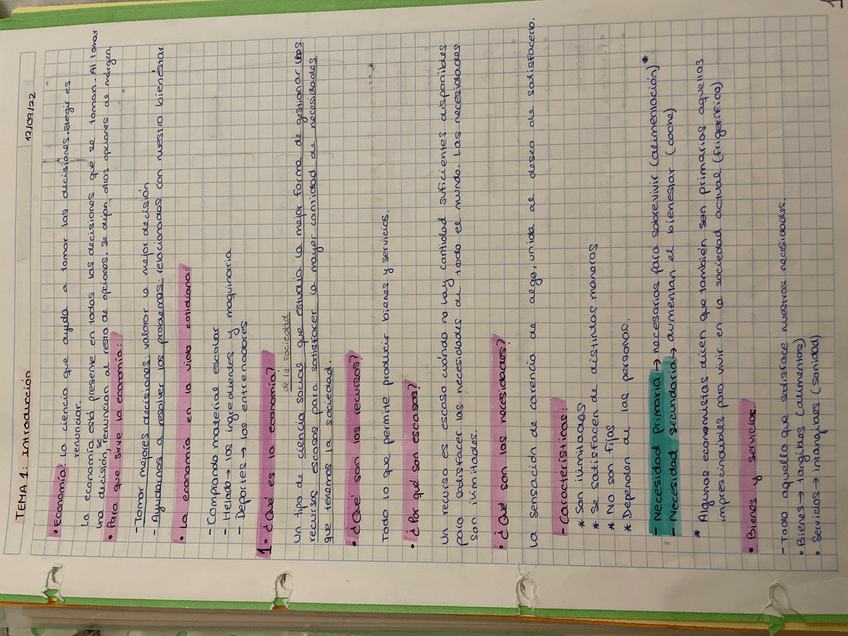 12/09/22
TEMA 1: Introducción
• Economía: la ciencia que ayuda a tomar las decisiones. Elegir es
renunciar.
La economía está presente en todas las decisiones que se toman. Al tomar
una decisión, se renuncian al resto de opciones. Se dejan otras opciones de margen.
• Para que sirve la economía:
- Tomar mejores decisiones: valorar la mejor decisión
- Ayudarnos a resolver los problemas: relacionados con nuestro bienestar
• La economía en la vida cotidiana:
- Comprando material escolar
- Helado → los ingredientes y maquinaria
- Deportes → los entrenadores
1. ¿Qué es la economía?
de la sociedad
Un tipo de ciencia social que estudia la mejor forma de gestionar los
recursos escasos para satisfacer la mayor cantidad de necesidades
que tenemos la sociedad.
• ¿Qué son los recursos?
Todo lo que permite producir bienes y servicios.
• ¿Por qué son escasos?
Un recurso es escaso cuándo no hay cantidad suficientes disponibles
para satisfacer las necesidades de todo el mundo. Las necesidades
son ilimitadas.
• ¿Qué son las necesidades?
La sensación de carencia de algo, unida al deseo de satisfacerlo.
- Características:
* Son ilimitadas
* Se satisfacen de distintas maneras
* No son fijas
* Dependen de las personas.
- Necesidad primaria → necesarias para sobrevivir (alimentación)*
- Necesidad secundaria → aumentan el bienestar (coche)
* Algunos economistas dicen que también son primarias aquellas
imprescindibles para vivir en la sociedad actual (frigorífico)
• Bienes y servicios:
- Todo aquello que satisface nuestras necesidades.
• Bienes → tangibles (alimentos)
• Servicios → intangibles (sanidad)